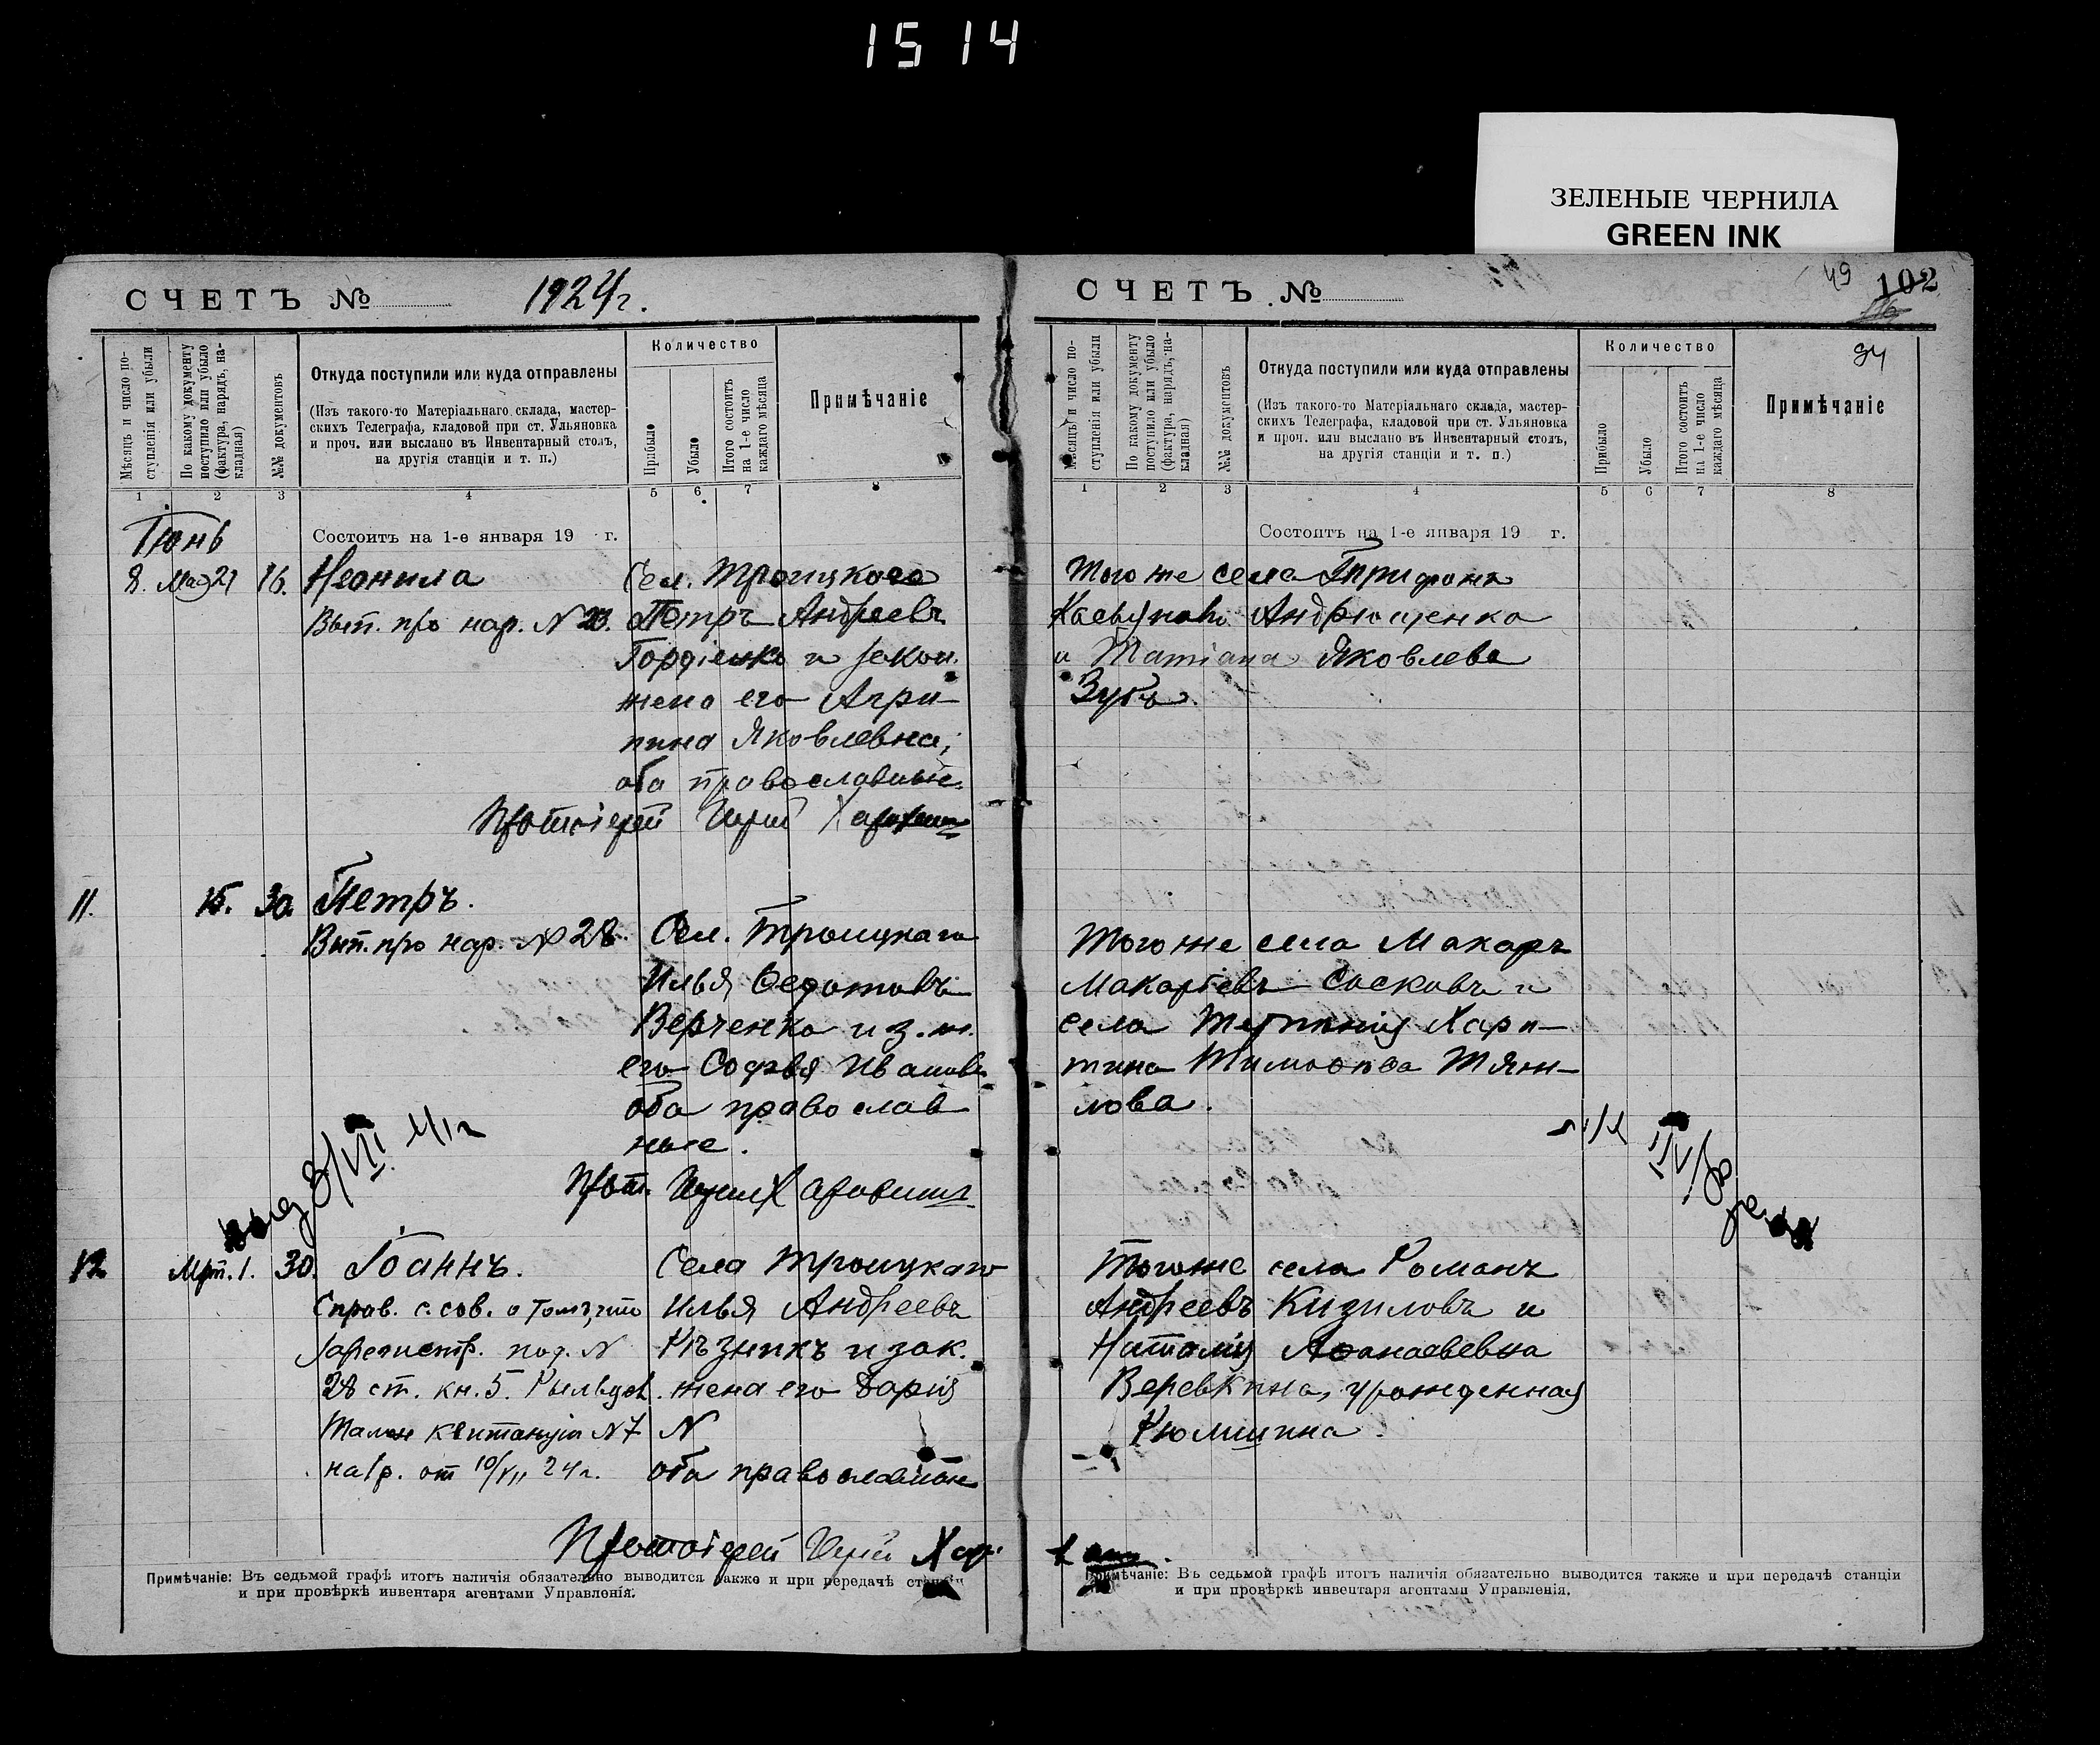 1514
ЗЕЛЕНЫЕ ЧЕРНИЛА
GREEN INK
СЧЕТЪ №
1924 г.
Мѣсяцъ и число поступленія или убыли
По какому документу поступило или убыло (фактура, нарядъ, накладная)
№№ документовъ
Откуда поступили или куда отправлены
(Изъ такого-то Матеріальнаго склада, мастер-
скихъ Телеграфа, кладовой при ст. Ульяновка
и проч. или выслано въ Инвентарный столъ,
на другія станціи и т. п.)
Количество
Прибыло
Убыло
Итого состоитъ на 1-е число каждаго мѣсяца
Примѣчаніе
1 2 3 4 5 6 7 8
Состоитъ на 1-е января 19 г.
Іюнь
8. Мая 21 16. Неонила
Вып. про нар. N
Сел. Троицкого
Петръ Андреевъ
Гордіенко и закон.
жена его Агри-
пина Яковлевна;
оба православные.
Протоіерей
11. 15. 30. Петръ.
Вып. про нар. № 28.
Сел. Троицкаго
Илья Ѳедотовъ
Верченко и з. ж.
его Софья Иванов
оба православ
ные.
Прот.
12 Мрт. 1. 30. Іоаннъ.
Справ. с. сов. о том, что
зарегистр. под. N
28 ст. кн. 5.
Талон квитанціи N 7
на 1 р. от 10/VII 24 г.
Села Троицкаго
Илья Андреевъ
и зак.
жена его Дарія
N
оба православные
Протоіерей
Примѣчаніе: Въ седьмой графѣ итогъ наличія обязательно выводится также и при передачѣ станціи
и при провѣркѣ инвентаря агентами Управленія.
СЧЕТЪ №
49 102
94
Мѣсяцъ и число поступленія или убыли
По какому документу поступило или убыло (фактура, нарядъ, накладная)
№№ документовъ
Откуда поступили или куда отправлены
(Изъ такого-то Матеріальнаго склада, мастер-
скихъ Телеграфа, кладовой при ст. Ульяновка
и проч. или выслано въ Инвентарный столъ,
на другія станціи и т. п.)
Количество
Прибыло
Убыло
Итого состоитъ на 1-е число каждаго мѣсяца
Примѣчаніе
1 2 3 4 5 6 7 8
Состоитъ на 1-е января 19 г.
Того же села
Андрющенко
и Татіана Яковлева
Зубъ.
Того же села Макаръ
Макаріевъ Сосковъ и
села Харі-
тина Тимоѳѣева Тяж-
лова.
Того же села Романъ
Андреевъ Кизиловъ и
Наталія Аѳанасьевна
Веревкина, урожденная
Кюмшина.
Примѣчаніе: Въ седьмой графѣ итогъ наличія обязательно выводится также и при передачѣ станціи
и при провѣркѣ инвентаря агентами Управленія.